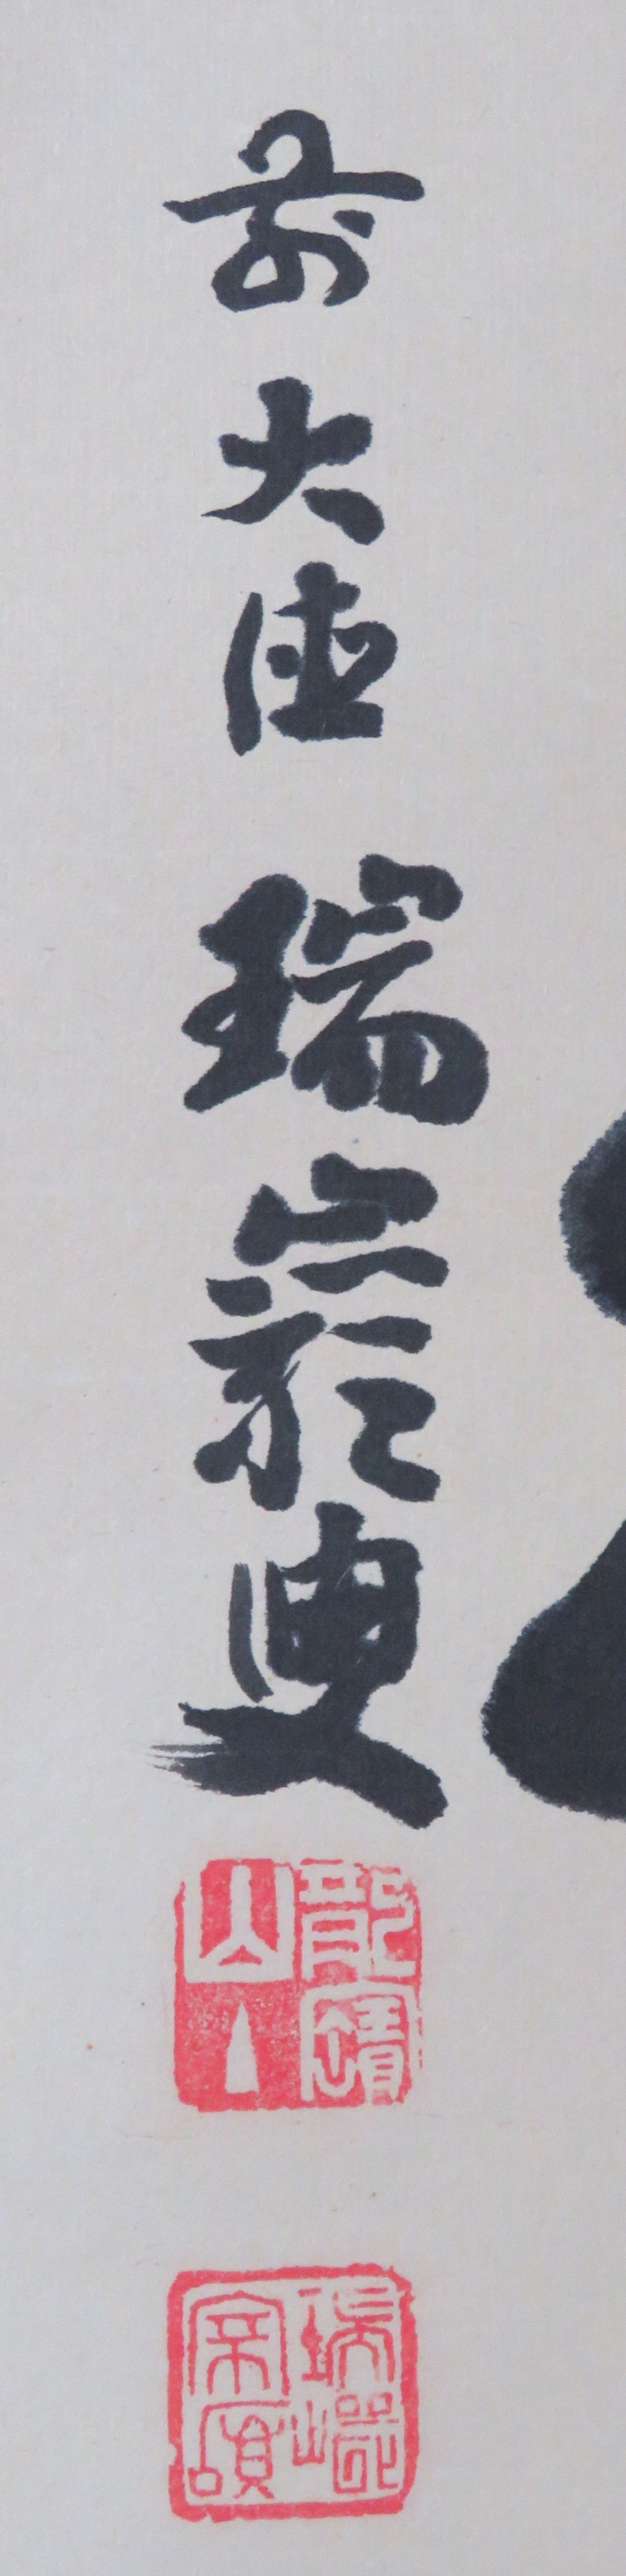 前大徳瑞巖叟
龍寶山
瑞巖宗碩